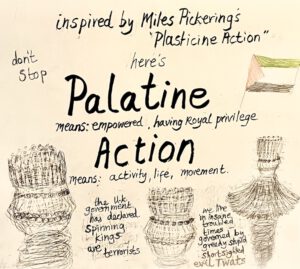 inspired by Miles Pickering's
"Plasticine Action"
don't
stop
here's
Palatine
means: empowered, having Royal privilege
Action
means: activity, life, movement.
the U.K
government
has declared
spinning
kings
are terrorists
we live
in insane,
troubled
times
governed by
greedy stupid
shortsighted
evil Twats